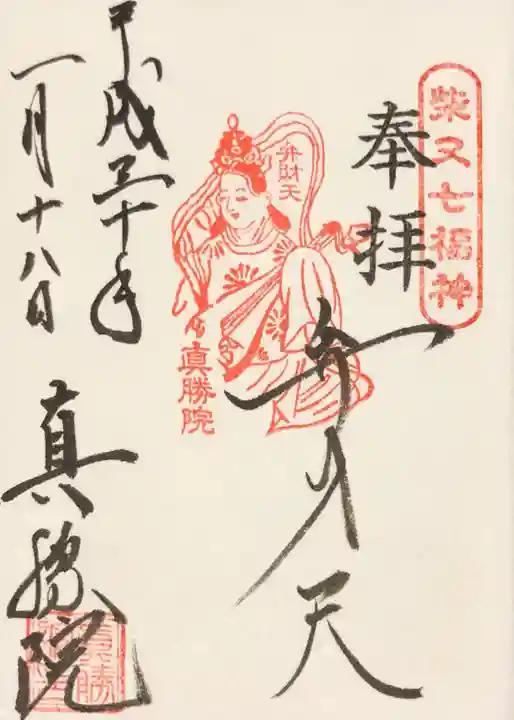 柴又七福神
奉拝
弁財天
弁才天
眞勝院
平成三十年
一月十八日
真勝院